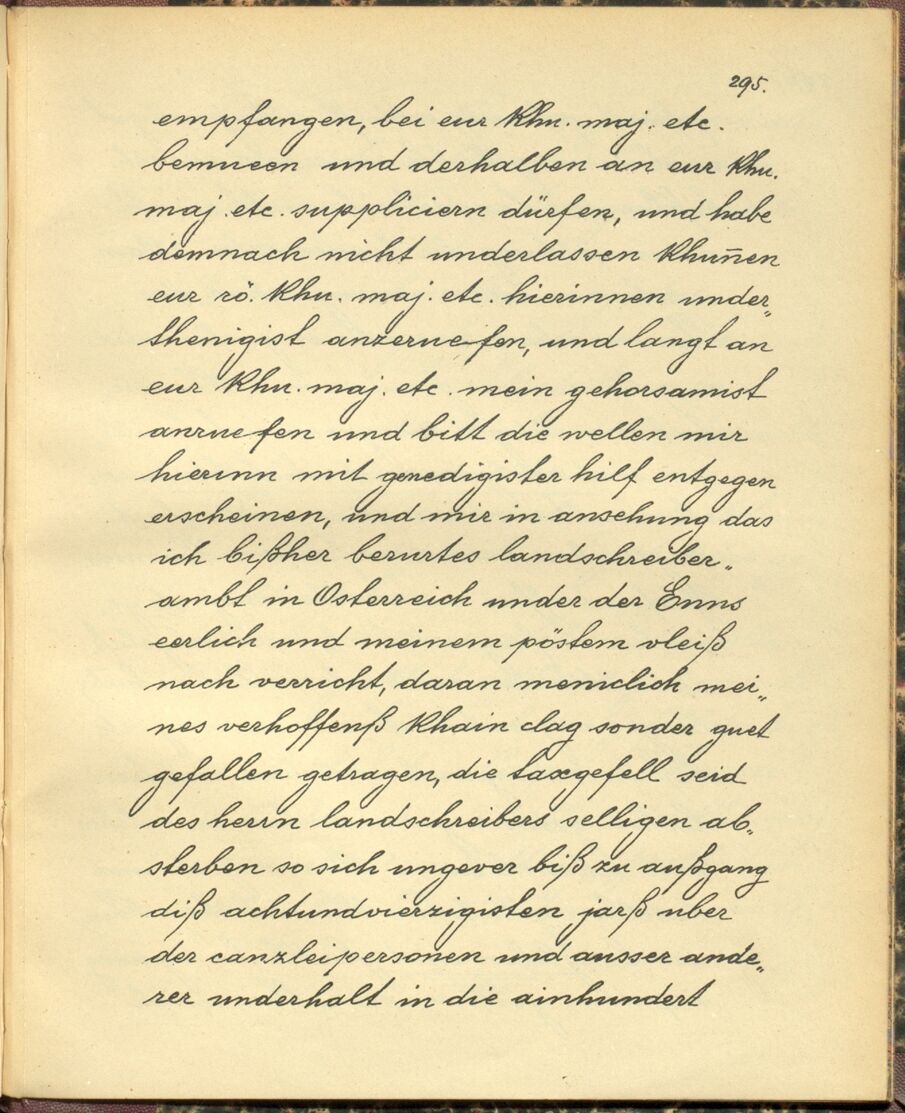 295.
empfangen, bei eur Khu. maj. etc.
bemueen und derhalben an eur Khu.
maj. etc. suppliciern dürfen, und habe
demnach nicht underlassen Khun̄en
eur rö. Khu. maj. etc. hierinnen under„
thenigist anzeruefen, und langt an
eur Khu. maj. etc. mein gehorsamist
anruefen und bitt die wellen mir
hierunn mit genedigister hilf entgegen
erscheinen, und mir in ansehung das
ich bißher berurtes landschreiber„
ambt in Osterreich under der Enns
eerlich und meinem pöstem vleiß
nach verricht, daran meniclich mei„
nes verhoffenß Khain clag sonder guet
gefallen getragen, die taxgefell seid
des herrn landschreibers selligen ab„
sterben so sich ungever biß zu außgang
diß achtundvierzigisten jarß uber
der canzleipersonen und ausser ande„
rer underhalt in die ainhundert